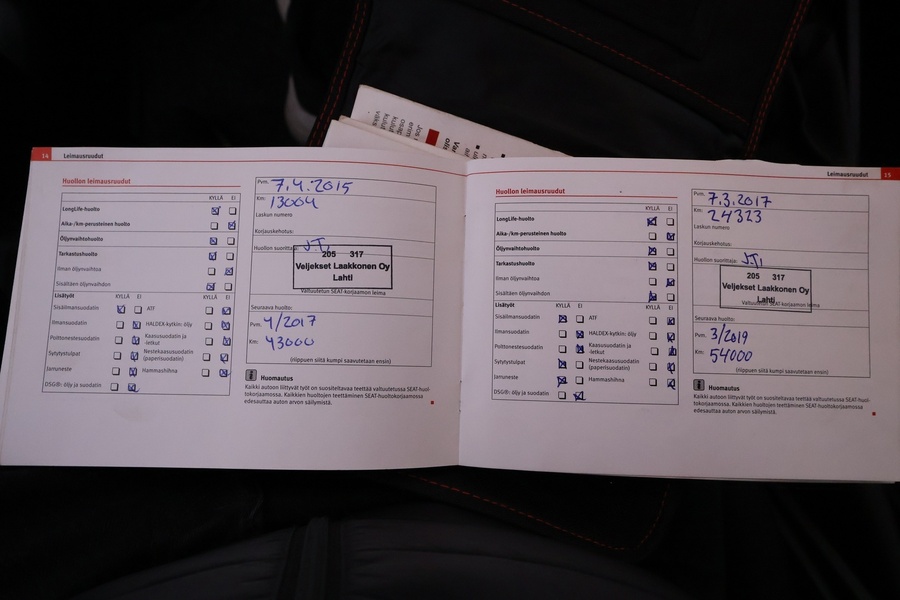 14 Leimausruudut
Huollon leimausruudut
KYLLÄ EI
LongLife-huolto
Aika-/km-perusteinen huolto
Öljynvaihtohuolto
Tarkastushuolto
Ilman öljynvaihtoa
Sisältäen öljynvaihdon
Lisätyöt KYLLÄ EI KYLLÄ EI
Sisäilmansuodatin ATF
Ilmansuodatin HALDEX-kytkin: öljy
Polttonestesuodatin Kaasusuodatin ja -letkut
Sytytystulpat Nestekaasusuodatin (paperisuodatin)
Jarruneste Hammashihna
DSG®: öljy ja suodatin
Pvm. 7.4.2015
Km: 13004
Laskun numero
Korjauskehotus:
Huollon suorittaja: J.T.
205 317
Veljekset Laakkonen Oy
Lahti
Valtuutetun SEAT-korjaamon leima
Seuraava huolto:
Pvm. 4/2017
Km: 43000
(riippuen siitä kumpi saavutetaan ensin)
Huomautus
Kaikki autoon liittyvät työt on suositeltavaa teettää valtuutetussa SEAT-huol-
tokorjaamossa. Kaikkien huoltojen teettäminen SEAT-huoltokorjaamossa
edesauttaa auton arvon säilymistä.
Leimausruudut 15
Huollon leimausruudut
KYLLÄ EI
LongLife-huolto
Aika-/km-perusteinen huolto
Öljynvaihtohuolto
Tarkastushuolto
Ilman öljynvaihtoa
Sisältäen öljynvaihdon
Lisätyöt KYLLÄ EI KYLLÄ EI
Sisäilmansuodatin ATF
Ilmansuodatin HALDEX-kytkin: öljy
Polttonestesuodatin Kaasusuodatin ja -letkut
Sytytystulpat Nestekaasusuodatin (paperisuodatin)
Jarruneste Hammashihna
DSG®: öljy ja suodatin
Pvm. 7.3.2017
Km: 24323
Laskun numero
Korjauskehotus:
Huollon suorittaja: J.T.
205 317
Veljekset Laakkonen Oy
Lahti
Valtuutetun SEAT-korjaamon leima
Seuraava huolto:
Pvm. 3/2019
Km: 54000
(riippuen siitä kumpi saavutetaan ensin)
Huomautus
Kaikki autoon liittyvät työt on suositeltavaa teettää valtuutetussa SEAT-huol-
tokorjaamossa. Kaikkien huoltojen teettäminen SEAT-huoltokorjaamossa
edesauttaa auton arvon säilymistä.